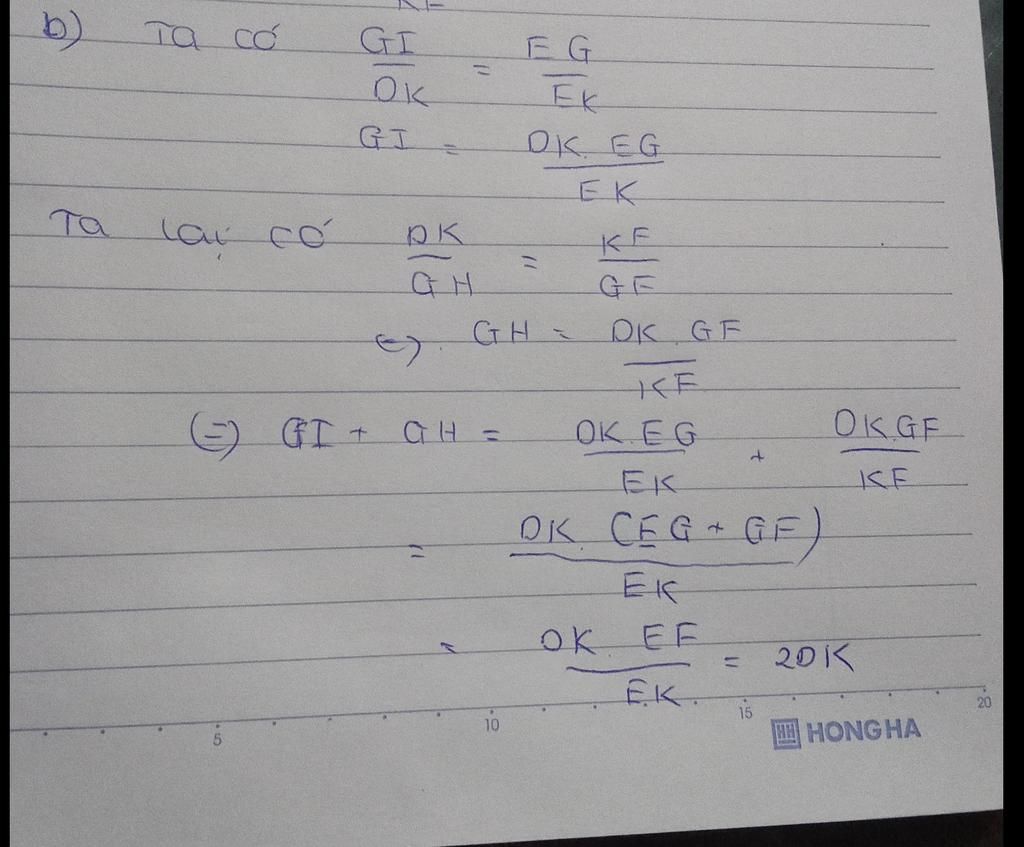 b) Ta có GI/DK = EG/EK
GI = DK. EG/EK
Ta lại có DK/GH = KF/GF
<=> GH = DK. GF/KF
(=) GI + GH = DK. EG/EK + DK.GF/KF
= DK. (EG + GF)/EK
= DK. EF/EK = 2DK
5 10 15 20
HH HONG HA